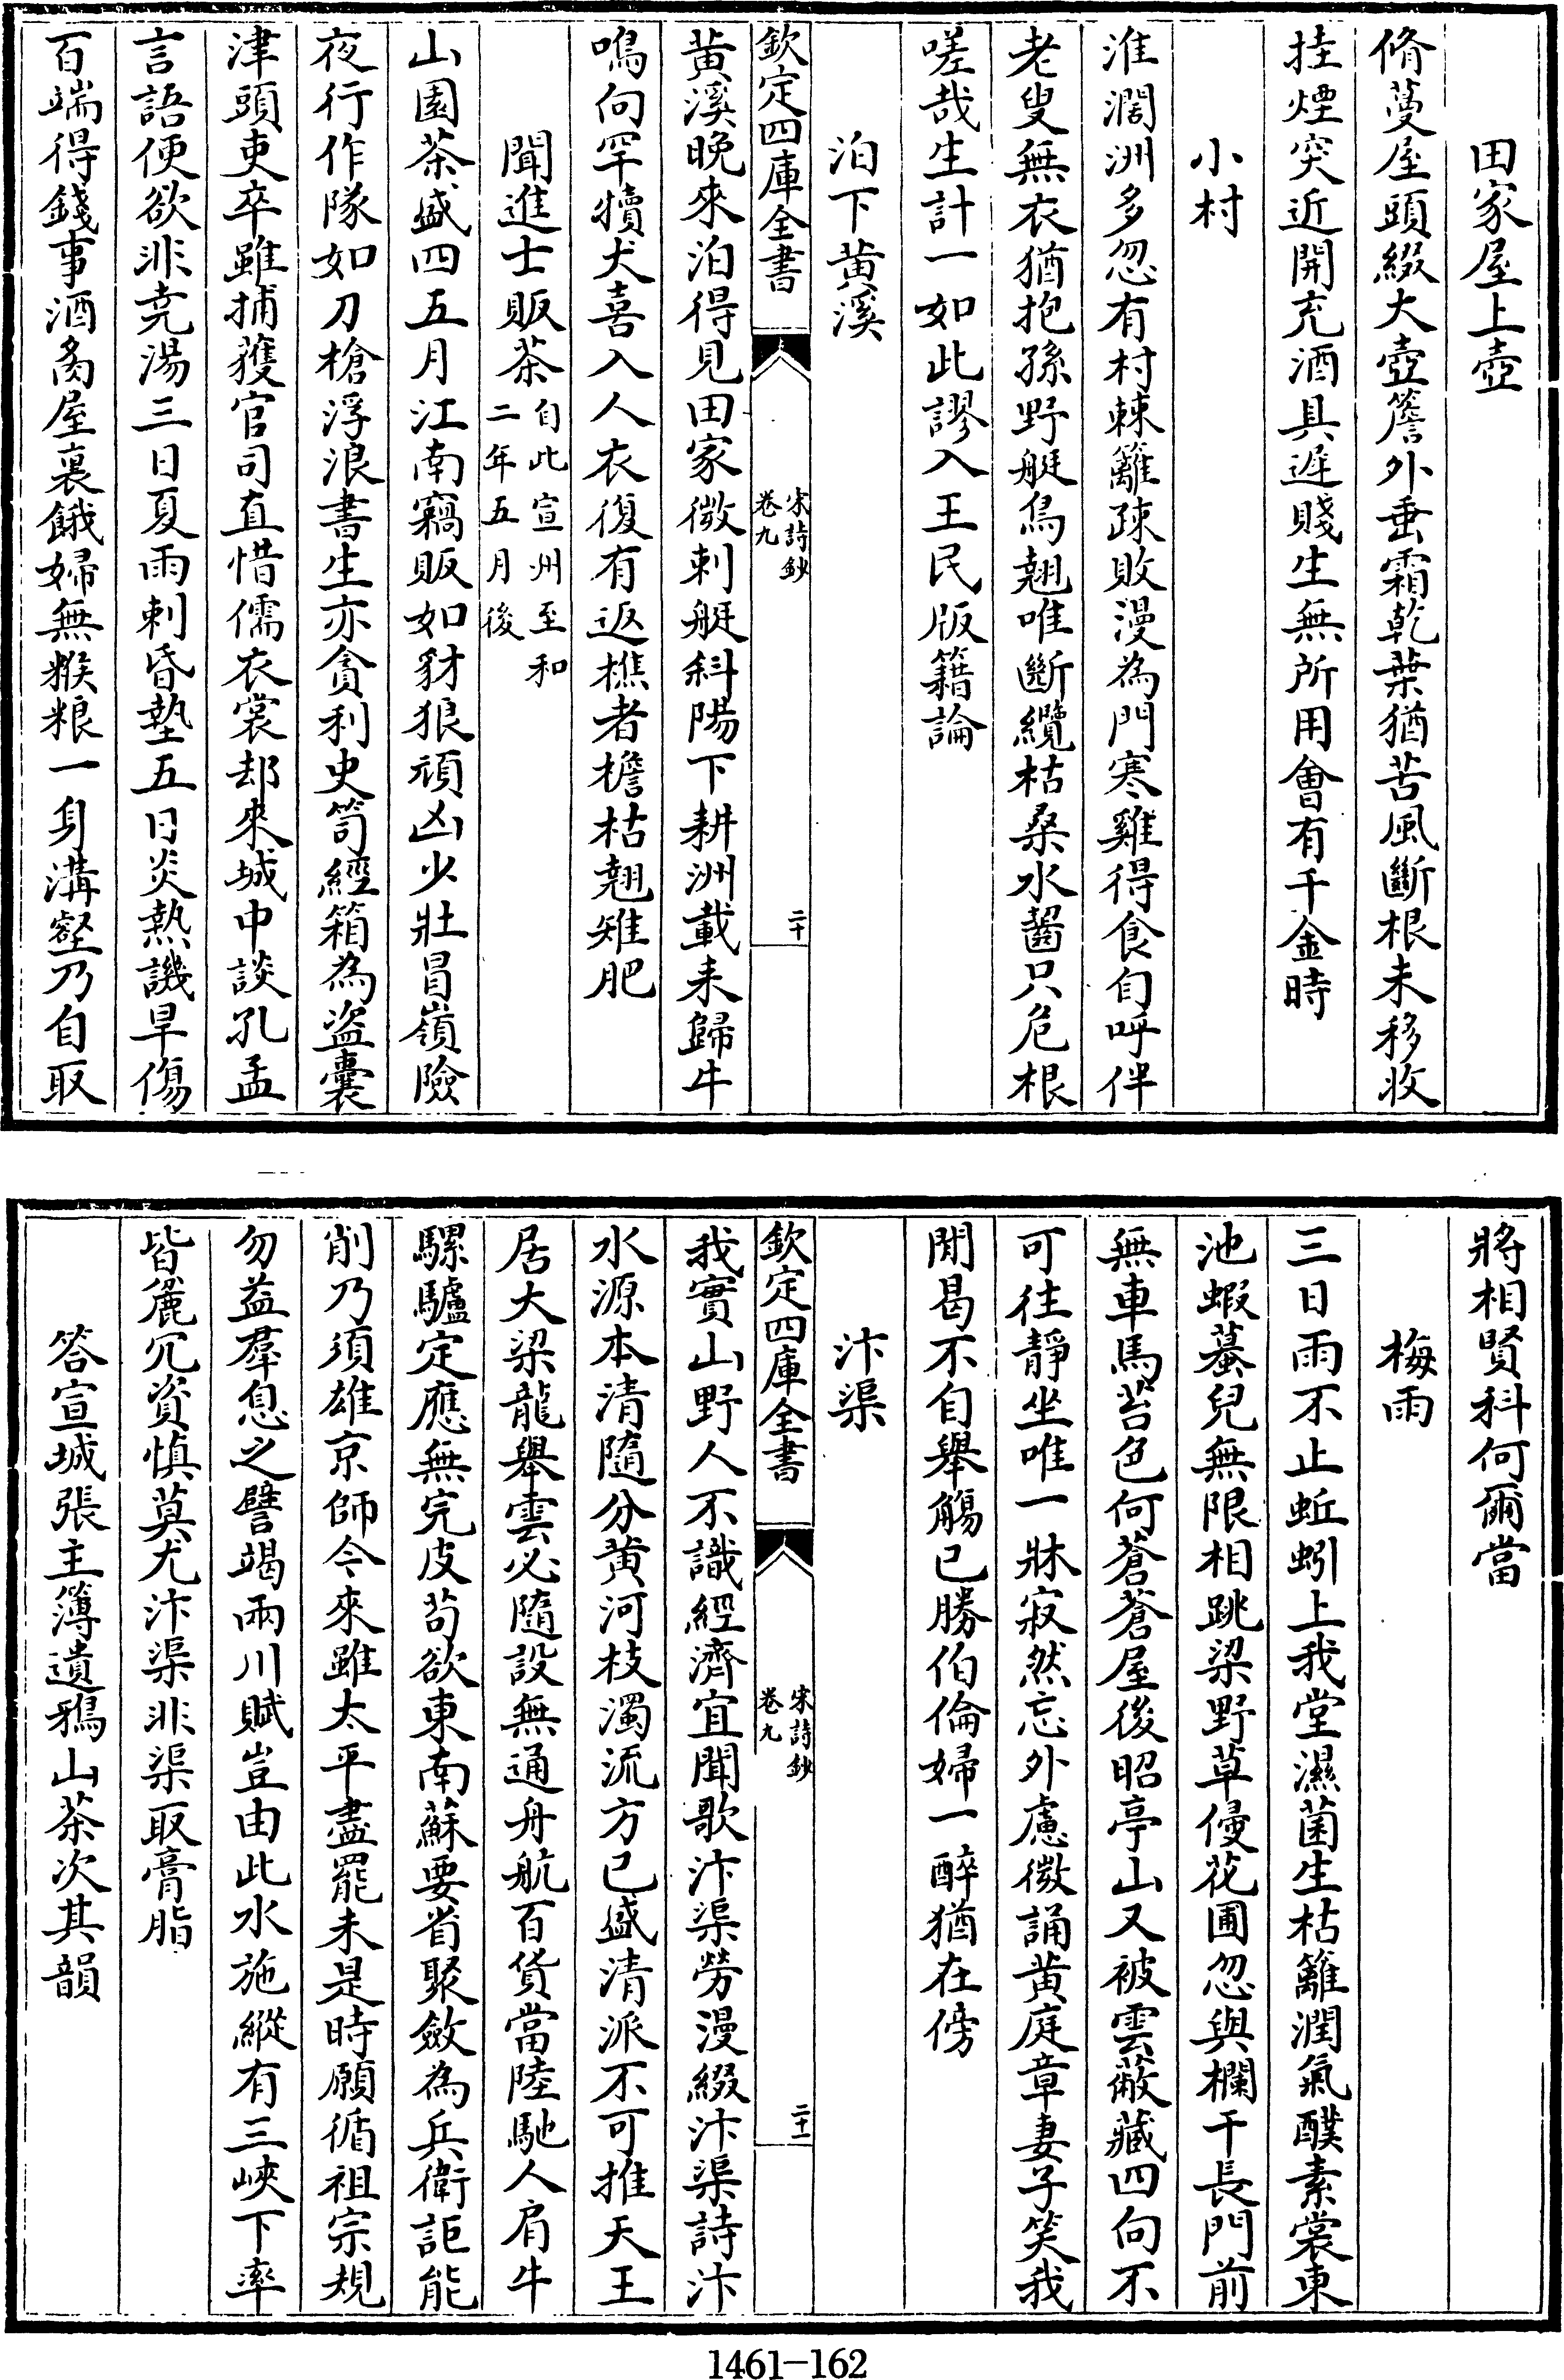 田家屋上壺
脩蔓屋頭綴大壺簷外垂霜乾葉猶苦風斷根未移收
挂煙突近開充酒具遲賤生無所用會有千金時
小村
淮濶洲多忽有村棘籬疎敗漫為門寒雞得食自呼伴
老叟無衣猶抱孫野艇鳥翹唯斷纜枯桑水齧只危根
嗟哉生計一如此謬入王民版籍論
泊下黄溪
欽定四庫全書
宋詩鈔
卷九
二十
黄溪晚來泊得見田家微刺艇斜陽下耕洲載耒歸牛
鳴向罕犢犬喜入人衣復有返樵者檐枯翹雉肥
聞進士販茶自此宣州至和
二年五月後
山園茶盛四五月江南竊販如豺狼頑凶少壯冒嶺險
夜行作隊如刀槍浮浪書生亦貪利史笥經箱為盜囊
津頭吏卒雖捕獲官司直惜儒衣裳却來城中談孔孟
言語便欲非堯湯三日夏雨刺昏墊五日炎熱譏旱傷
百端得錢事酒卮屋裏餓婦無糇粮一身溝壑乃自取
將相賢科何爾當
梅雨
三日雨不止蚯蚓上我堂濕菌生枯籬潤氣醭素裳東
池蝦蟇兒無限相跳梁野草侵花圃忽與欄干長門前
無車馬苔色何蒼蒼屋後昭亭山又被雲蔽藏四向不
可往靜坐唯一牀寂然忘外慮微誦黄庭章妻子笑我
閒曷不自舉觴已勝伯倫婦一醉猶在傍
汴渠
欽定四庫全書
宋詩鈔
卷九
二十一
我實山野人不識經濟宜聞歌汴渠勞漫綴汴渠詩汴
水源本清隨分黄河枝濁流方已盛清派不可推天王
居大梁龍舉雲必隨設無通舟航百貨當陸馳人肩牛
騾驢定應無完皮苟欲東南蘇要省聚斂為兵衛詎能
削乃須雄京師今來雖太平盡罷未是時願循祖宗規
勿益羣息之譬竭兩川賦豈由此水施縱有三峽下率
皆麄冗資慎莫尤汴渠非渠取膏脂
答宣城張主簿遺鴉山茶次其韻
1461-162